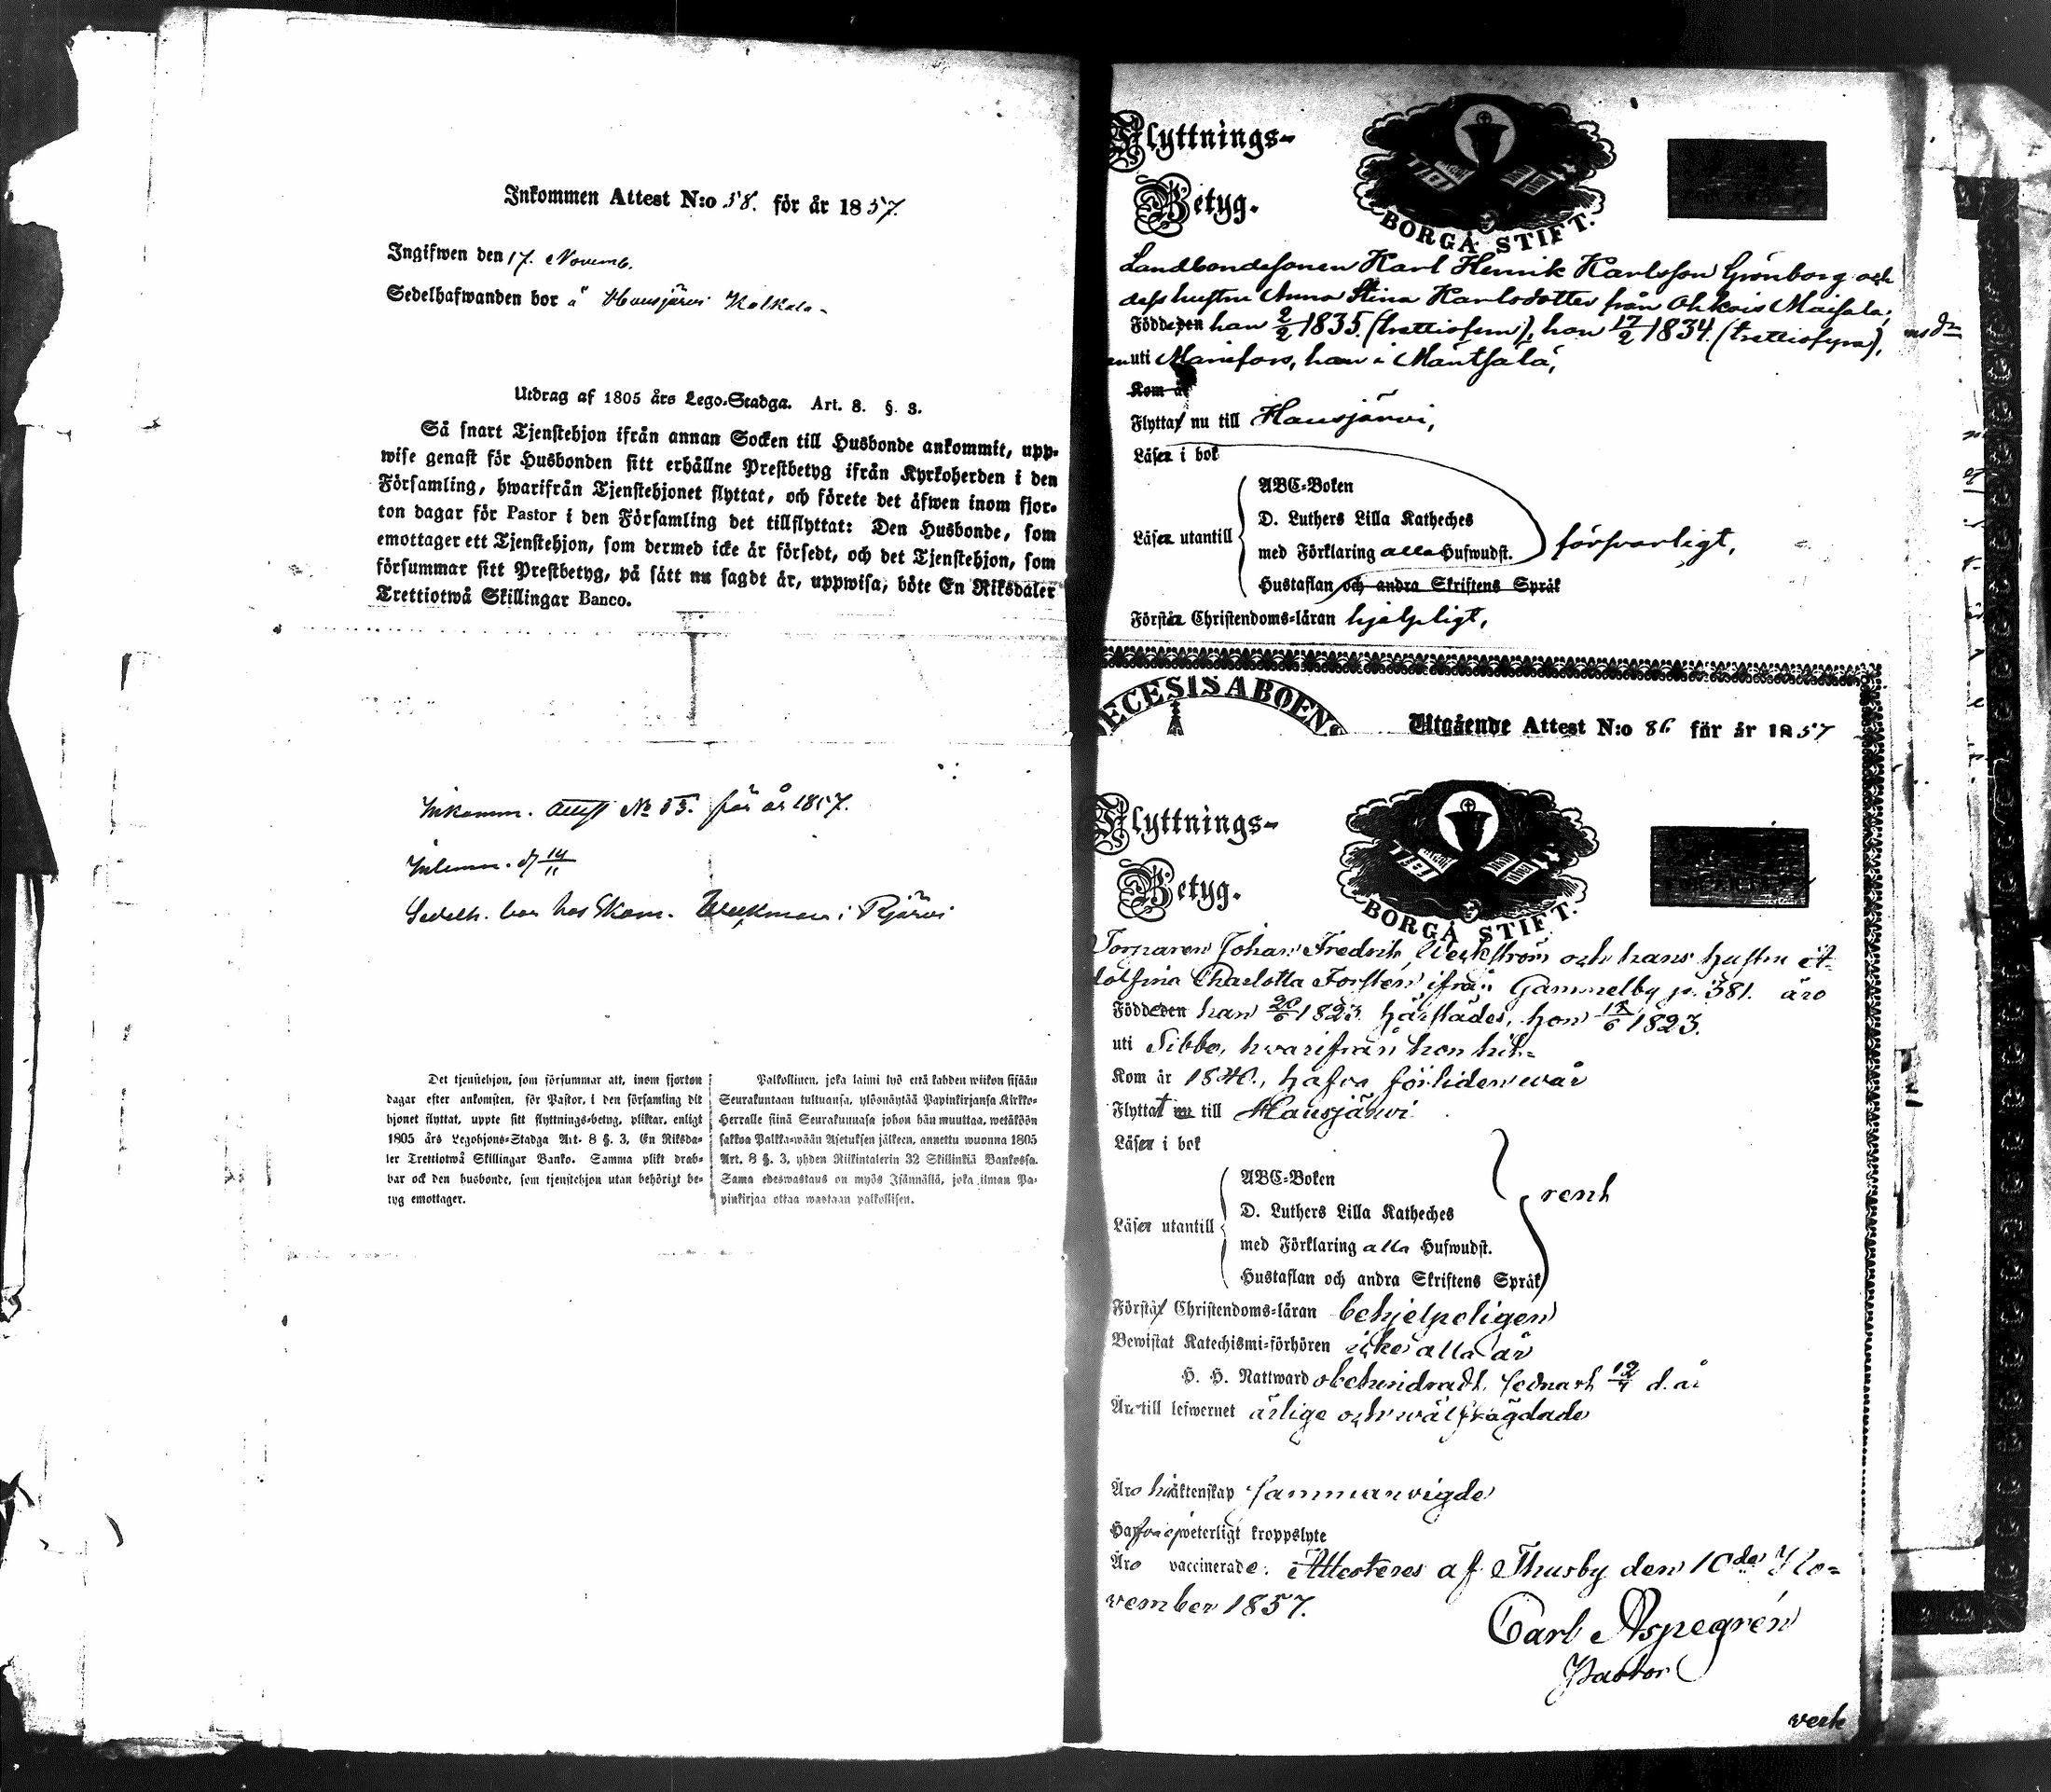 Inkommen Attest N:o 58. för år 1857.
Ingifwen den 17. Novemb.
Sedelhafwanden bor å Hausjärvi Kalkala
Utdrag af 1805 års Lego-Stadga. Art. 8. §. 3.
Så snart Tjenstehjon ifrån annan Socken till Husbonde ankommit, upp-
wise genast för Husbonden sitt erhållne Prestbetyg ifrån Kyrkoherden i den
Församling, hwarifrån Tjenstehjonet flyttat, och förete det äfwen inom fjor-
ton dagar för Pastor i den Församling det tillflyttat: Den Husbonde, som
emottager ett Tjenstehjon, som dermed icke är försedt, och det Tjenstehjon, som
försummar sitt Prestbetyg, på sätt nu sagdt är, uppwisa, böte En Riksdaler
Trettiotwå Skillingar Banco.
Inkomm. Attest No 53. för år 1857.
14/11
Sedelh. bor hos i Rjärvi
Det tjenstehjon, som försummar att, inom fjorton
dagar efter ankomsten, för Pastor, i den församling dit
hjonet flyttat, uppte sitt flyttnings-betyg, pliktar, enligt
1805 års Legohjons-Stadga Art. 8 §. 3, En Riksda-
ler Trettiotwå Skillingar Banko. Samma plikt drab-
bar ock den husbonde, som tjenstehjon utan behörigt be-
tyg emottager.
Palkollinen, joka laimi lyö että kahden wiikon sisään
Seurakuntaan tultuansa, ylösnäytää Papinkirjansa Kirkko-
Herralle siinä Seurakunnasa johon hän muuttaa, wetäköön
sakkoa Palkka-wään Asetuksen jälkeen, annettu wuonna 1805
Art. 8 §. 3, yhden Riikintalerin 32 Skillinkiä Bankossa.
Sama edeswastaus on myös Isännällä, joka ilman Pa-
pinkirjaa ottaa wastaan palkollisen.
Flyttnings-
Betyg.
BORGÅ STIFT.
Landbondesonen Karl Henrik Karlsson Grönborg och
dess hustru Anna Stina Karlsdotter från Ohkois Maisala,
Födde den han 2/2 1835 (trettiofem), hon 17/2 1834. (trettiofyra),
uti Mariefors, han i Mäntsälä,
Kom år
Flytta nu till Hausjärvi,
Läsa i bok
ABC-Boken
D. Luthers Lilla Katheches
Läsa utantill
med Förklaring alla Hufwudst.
försvarligt,
Hustaflan och andra Skriftens Språk
Förstå Christendoms-läran hjelpligt,
DECESIS ABOENS
Utgående Attest N:o 86 för år 1857
Flyttnings-
Betyg.
BORGÅ STIFT.
Torparen Johan Fredrik Werkström och hans hustru A-
dolfina Charlotta Forstén, ifrån Gammelby p. 381. äro
Födde den han 20/6 1823 härstädes, hon 1823.
uti Sibbo, hvarifrån hon hit-
Kom år 1840, hafva förliden vår
Flyttat nu till Hausjärvi
Läsa i bok
ABC-Boken
rent
D. Luthers Lilla Katheches
Läsa utantill
med Förklaring alla Hufwudst.
Hustaflan och andra Skriftens Språk
Förstå Christendoms-läran behjelpeligen
Bewistat Katechismi-förhören icke alla år
H. H. Nattward obehindradt, senast d. år
Äro till lefwernet ärlige och välfrägdade
Äro hi äktenskap sammanvigde
Hafva ej weterligt kroppslyte
Äro vaccinerade. Attesteres af Thusby den 10de No-
vember 1857.
Carl Aspegrén
Pastor
verk